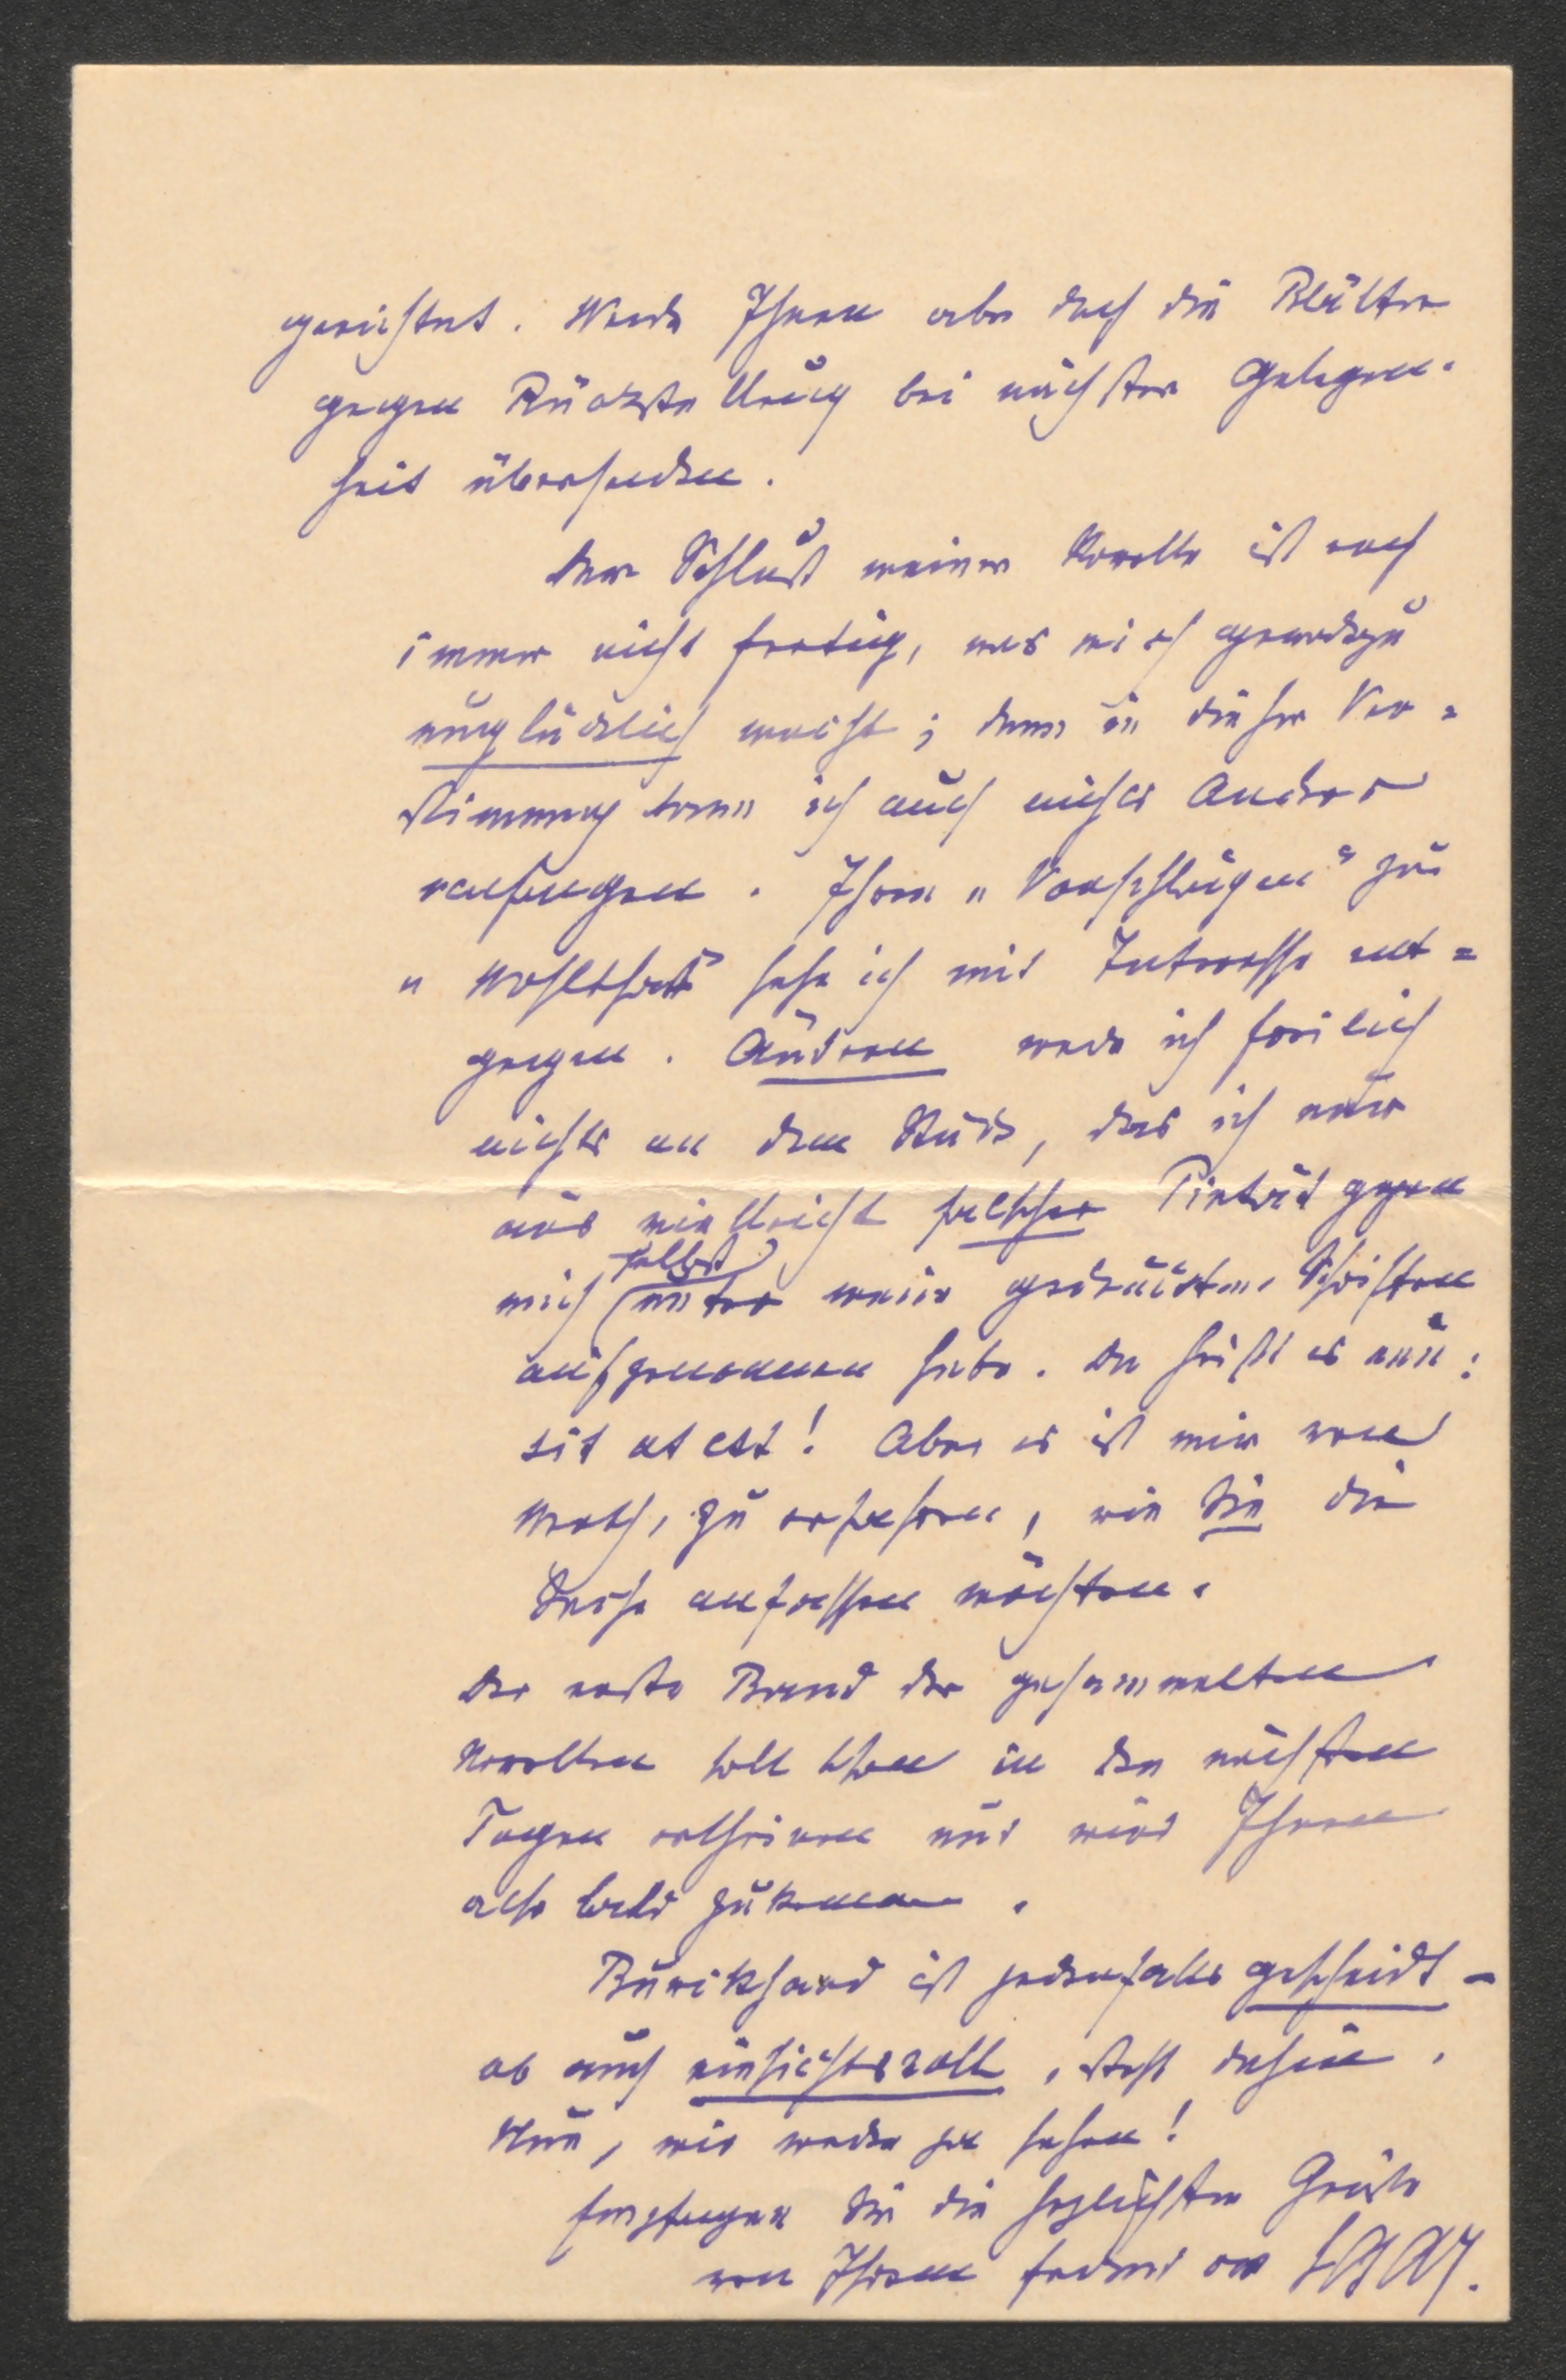 gerichtet. Werde Ihnen aber doch die Blätter
gegen Rückstellung bei nächster Gelegen-
heit übersenden.
Der Schluß meiner Novelle ist noch
immer nicht fertig, was mich geradezu
unglücklich macht; denn in dieser Ver=
stimmung kann ich auch nichts Anderes
anfangen. Ihren „Vorschlägen" zur
„Wohlthat" sehe ich mit Interesse ent=
gegen. Ändern werde ich freilich
nichts an dem Stück, das ich nur
aus vielleicht falscher Pietät gegen
mich selbst unter meine gedruckten Schriften
aufgenommen habe. Da heißt es nun:
sit ut est! Aber es ist mir von
Werth, zu erfahren, wie Sie die
Sache anfassen möchten.
Der erste Band der gesammelten
Novellen soll schon in den nächsten
Tagen erscheinen und wird Ihnen
also bald zukommen.
Burckhard ist jedenfalls gescheidt –
ob auch einsichtsvoll, steht dahin.
Nun, wir werden ja sehen!
Empfangen Sie die herzlichsten Grüße
von Ihrem